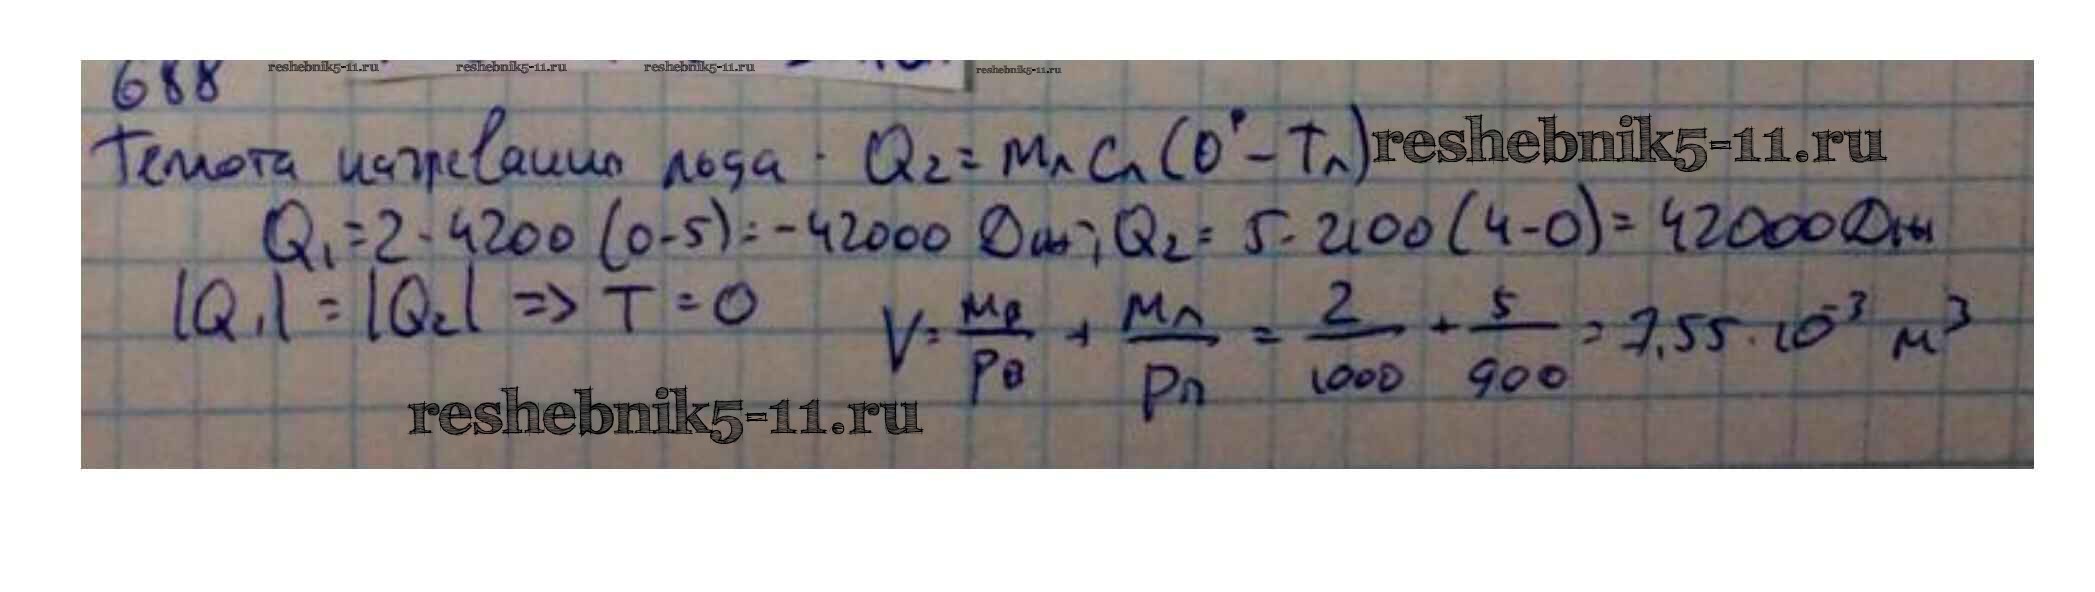 688
reshebnik5-11.ru reshebnik5-11.ru reshebnik5-11.ru reshebnik5-11.ru
Теплота нагревания льда. Q₂ = mл cл (0° - Tл) reshebnik5-11.ru
Q₁ = 2 · 4200 (0-5) = -42000 Дж; Q₂ = 5 · 2100 (4-0) = 42000 Дж
|Q₁| = |Q₂| => T = 0 V = mв/ρв + mл/ρл = 2/1000 + 5/900 = 7,55 · 10⁻³ м³
reshebnik5-11.ru